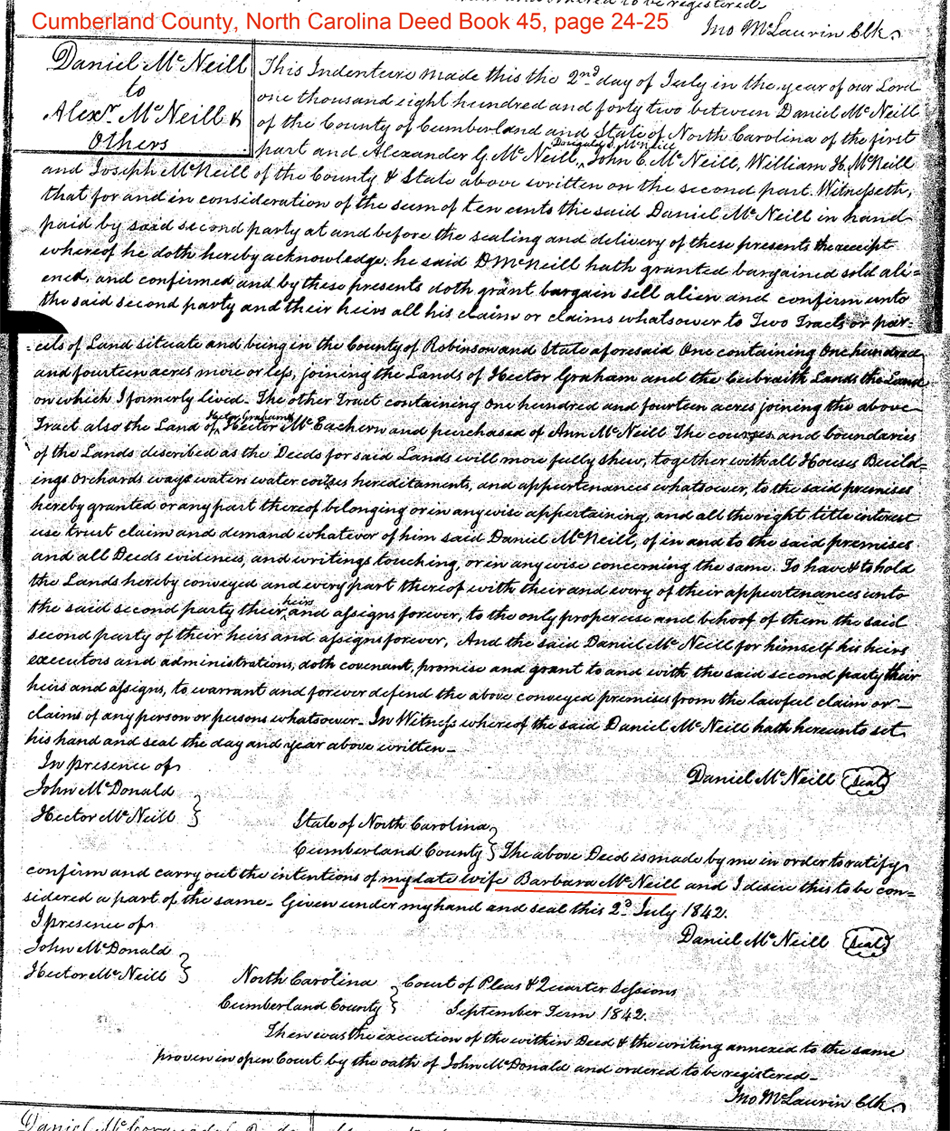 to be registered
Cumberland County, North Carolina Deed Book 45, page 24-25
Jno McLaurin Clk.
Daniel McNeill
to
Alexr. McNeill &
Others
This Indenture made this the 2nd day of July in the year of our Lord
one thousand eight hundred and forty two between Daniel McNeill
of the County of Cumberland and State of North Carolina of the first
part and Alexander G. McNeill, John C. McNeill, William H. McNeill
and Joseph McNeill of the County & State above written on the second part. Witnesseth,
that for and in consideration of the sum of ten cents the said Daniel McNeill in hand
paid by said second party at and before the sealing and delivery of these presents the receipt
whereof he doth hereby acknowledge. he said D McNeill hath granted bargained sold ali=
ened, and confirmed and by these presents doth grant bargain sell alien and confirm unto
the said second party and their heirs all his claim or claims whatsower to Two Tracts or par-
=cels of Land situate and being in the County of Robinson and State aforesaid One containing One hundred
and fourteen acres more or less, joining the Lands of Hector Graham and the Lands the Land
on which I formerly lived. The other Tract containing One hundred and fourteen acres joining the above
Hector Grahams
Tract also the Land of ^ Hector McEachern and purchased of Ann McNeill The courses and boundaries
of the Lands discribed as the Deeds for said Lands will more fully shew, together with all Houses Build=
ings orchards ways waters water courses hereditaments, and appurtenances whatsower, to the said premises
hereby granted or any part thereof belonging or in anywise appertaining, and all the right title interest
use trust claim and demand whatever of him said Daniel McNeill, of in and to the said premises
and all Deeds evidences, and writings touching, or in anywise concerning the same. To have & to hold
the Lands hereby conveyed and every part thereof with their and every of their appurtenances unto
heirs
the said second party their ^ and assigns forever, to the only proper use and behoof of them the said
second party of their heirs and assigns forever, And the said Daniel McNeill for himself his heirs
executors and administrations, doth covenant, promise and grant to and with the said second party their
heirs and assigns, to warrant and forever defend the above conveyed premises from the lawful claim or
claims of any person or persons whatsower. In Witness whereof the said Daniel McNeill hath hereunto set
his hand and seal the day and year above written
In presence of
Daniel McNeill (Seal)
John McDonald
Hector McNeill
State of North Carolina
Cumberland County } The above Deed is made by me in order to ratify
confirm and carry out the intentions of my late wife Barbara McNeill and I desire this to be con-
sidered a part of the same. Given under my hand and seal this 2d July 1842.
I presence of
Daniel McNeill (Seal)
John McDonald
Hector McNeill
North Carolina } Court of Pleas & Quarter Sessions
Cumberland County } September Term 1842.
Then was the execution of the within Deed & the writing annexed to the same
proven in open Court by the oath of John McDonald and ordered to be registered
Jno McLaurin Clk.